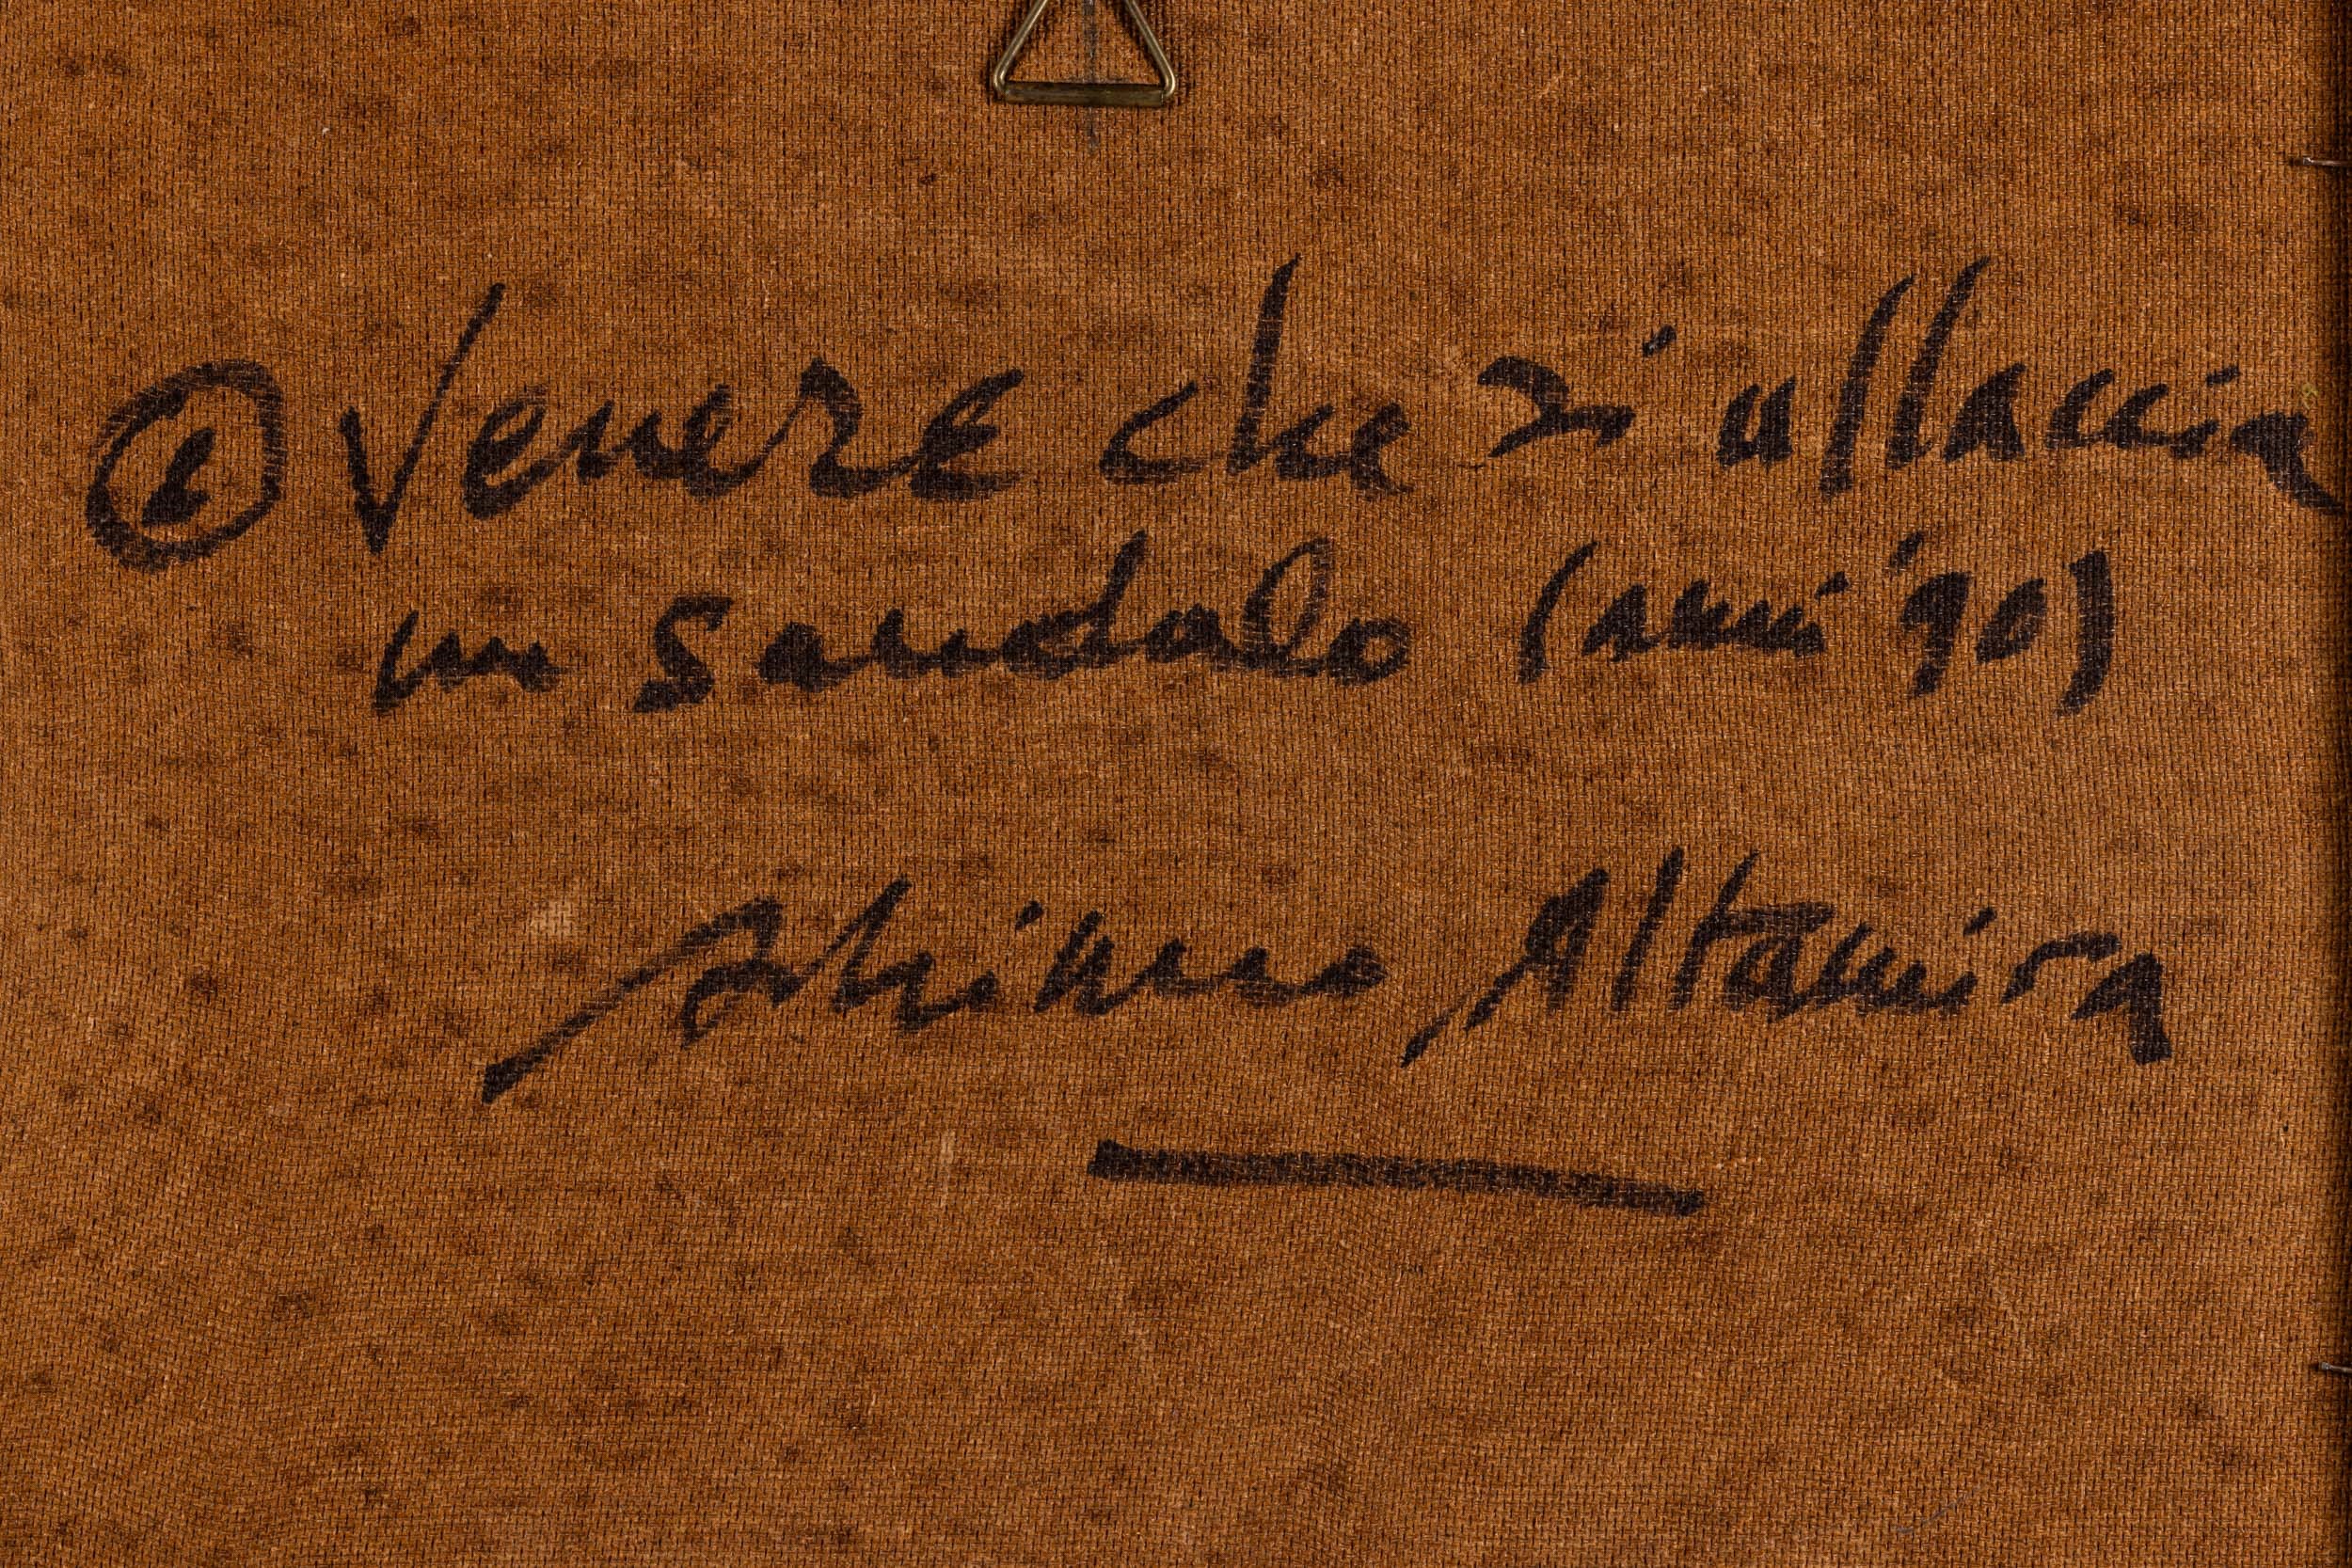 Venere che si allaccia
un sandalo (anni '90)
Adriano Altamira